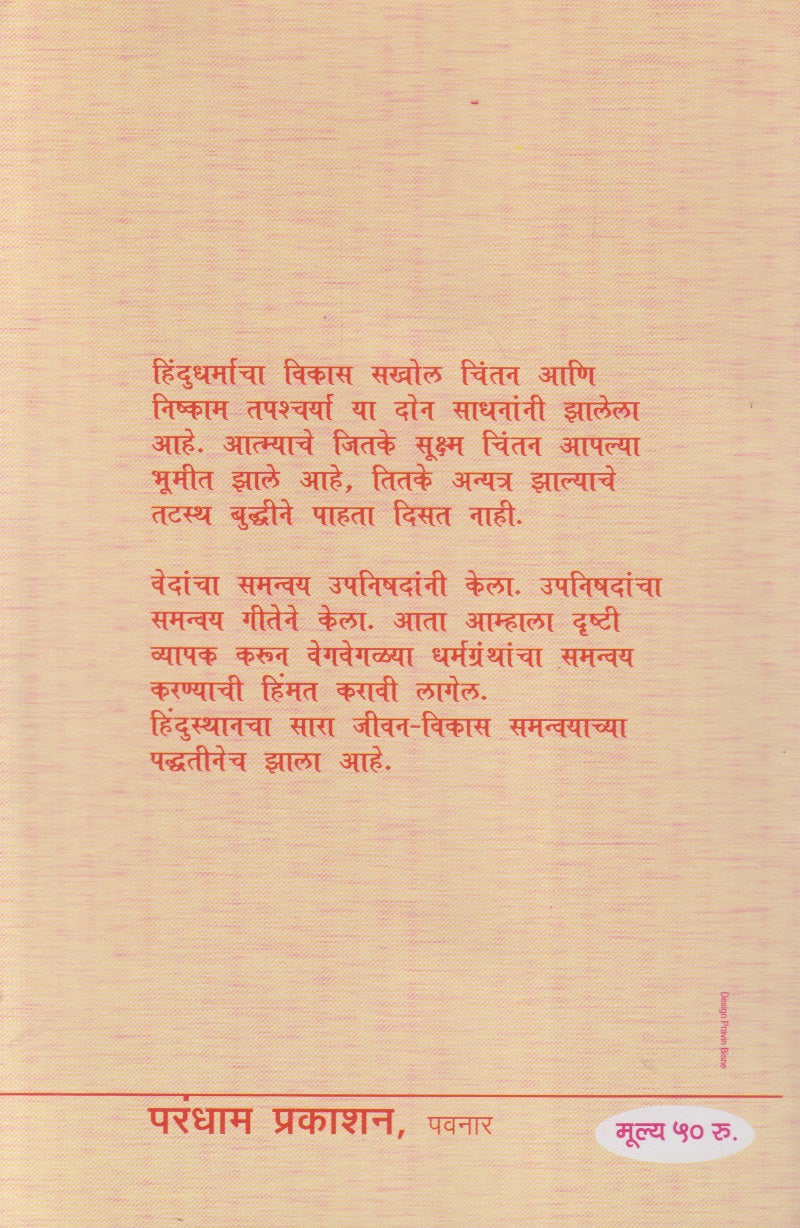 हिंदुधर्माचा विकास सखोल चिंतन आणि
निष्काम तपश्चर्या या दोन साधनांनी झालेला
आहे. आत्म्याचे जितके सूक्ष्म चिंतन आपल्या
भूमीत झाले आहे, तितके अन्यत्र झाल्याचे
तटस्थ बुद्धीने पाहता दिसत नाही.
वेदांचा समन्वय उपनिषदांनी केला. उपनिषदांचा
समन्वय गीतेने केला. आता आम्हाला दृष्टी
व्यापक करून वेगवेगळ्या धर्मग्रंथांचा समन्वय
करण्याची हिंमत करावी लागेल.
हिंदुस्थानचा सारा जीवन-विकास समन्वयाच्या
पद्धतीनेच झाला आहे.
Design Pravin Bisne
परंधाम प्रकाशन, पवनार
मूल्य ५० रु.